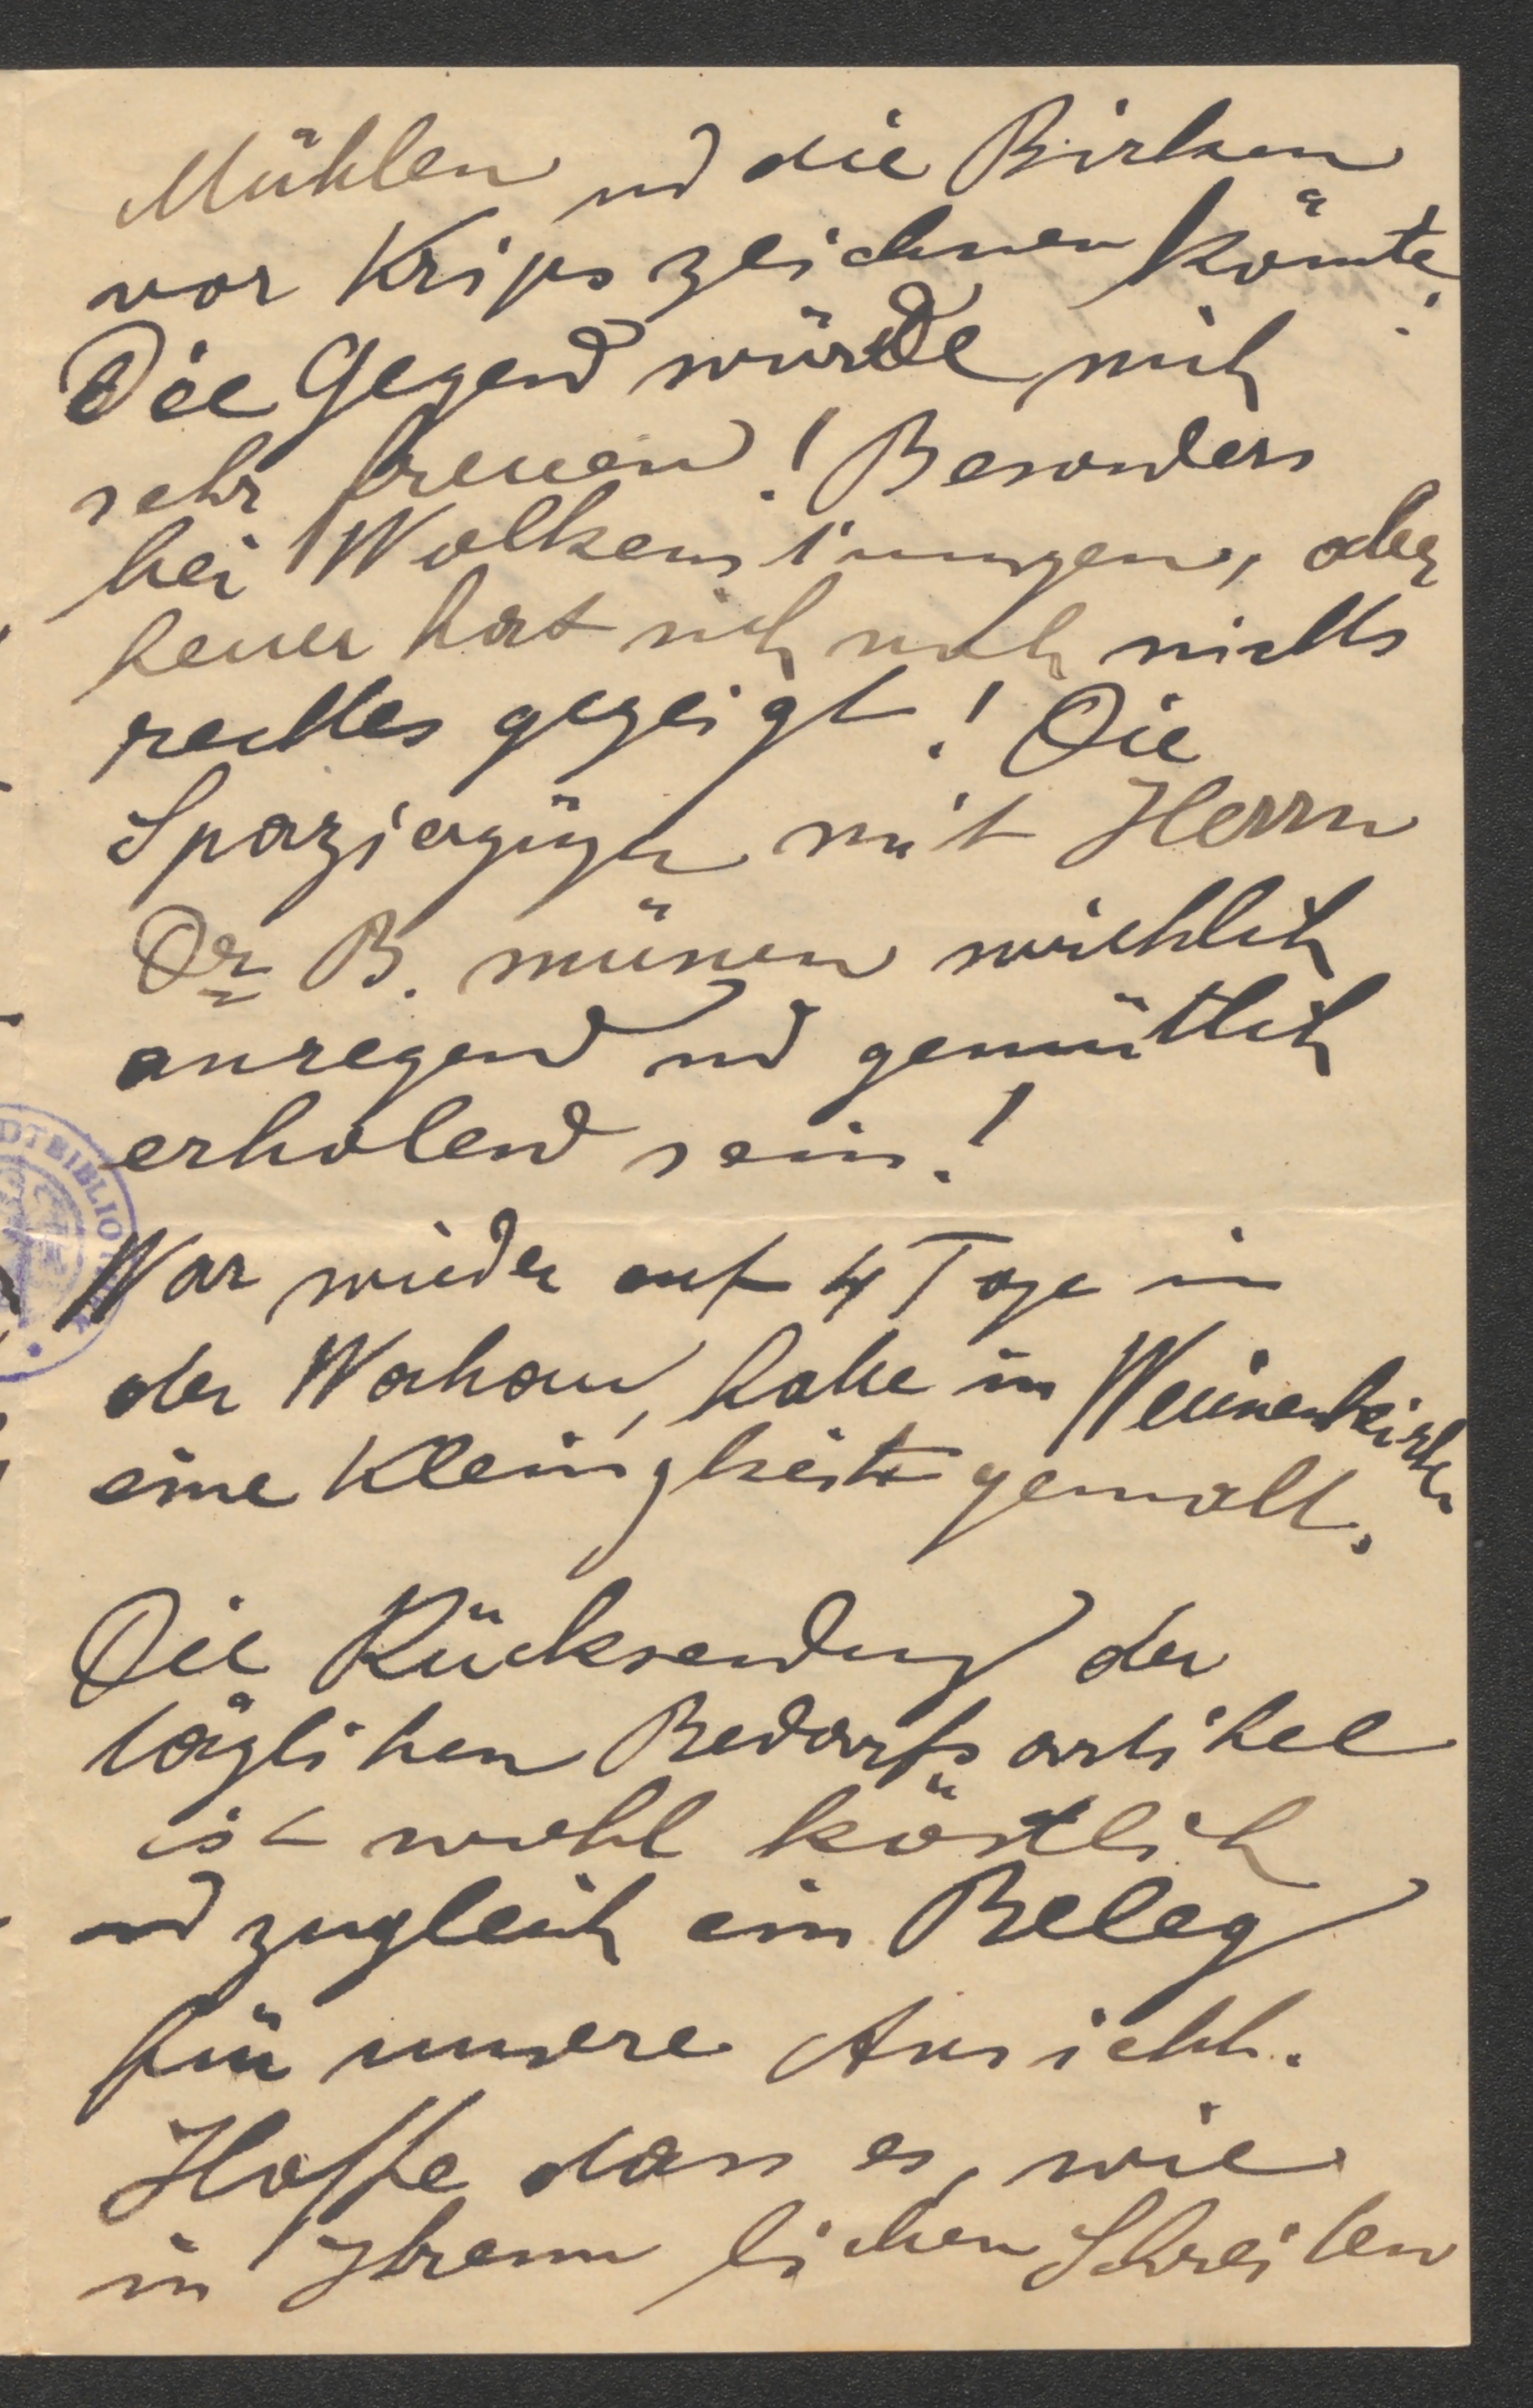 Mühlen und die Birken
vor Krips zeichnen könnte.
Die Gegend würde mich
sehr freuen! Besonders
bei Wolkenstimmungen, aber
heuer hat sich noch nichts
rechtes gezeigt! Die
Spaziergänge mit Herrn
Dr. B. müssen wirklich
anregend und gemütlich
erholend sein!
War wieder auf 4 Tage in
der Wachau, habe in Weissenkirchen
eine Kleinigkeit gemalt.
Die Rücksendung der
täglichen Bedarfsartikel
ist wohl köstlich
und zugleich ein Beleg
für unsere Ansicht.
Hoffe dass es, wie
in Ihrem lieben Schreiben